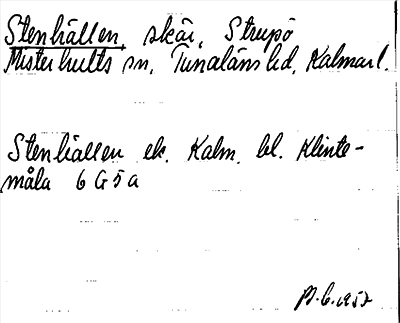 Stenhällen, skär, Strupö
Misterhults sn, Tunaläns hd, Kalmar l.
Stenhällen ek. Kalm. bl. Klinte-
måla 6 G 5 a
1952